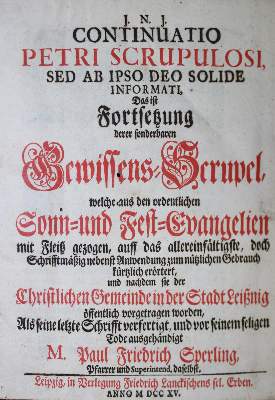 J. N. J.
CONTINUATIO
PETRI SCRUPULOSI,
SED AB IPSO DEO SOLIDE
INFORMATI,
Das ist
Fortsetzung
derer sonderbaren
Gewissens-Scrupel,
welche aus den ordentlichen
Sonn- und Fest-Evangelien
mit Fleiß gezogen, auff das allereinfältigste, doch
Schrifftmäßig nebenst Anwendung zum nützlichen Gebrauch
kürtzlich erörtert,
und nachdem sie der
Christlichen Gemeinde in der Stadt Leißnig
öffentlich vorgetragen worden,
Als seine letzte Schrifft verfertigt, und vor seinem seligen
Tode ausgehändigt
M. Paul Friedrich Sperling,
Pfarrer und Superintend. daselbst.
Leipzig, in Verlegung Friedrich Lanckischens sel. Erben.
ANNO M DCC XV.